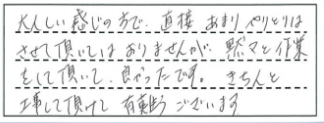 大人しい感じの方で、直接あまりやりとりは
させて頂いてはおりませんが、黙々と作業
をして頂いて、良かったです。きちんと
工事して頂けて有難うございます